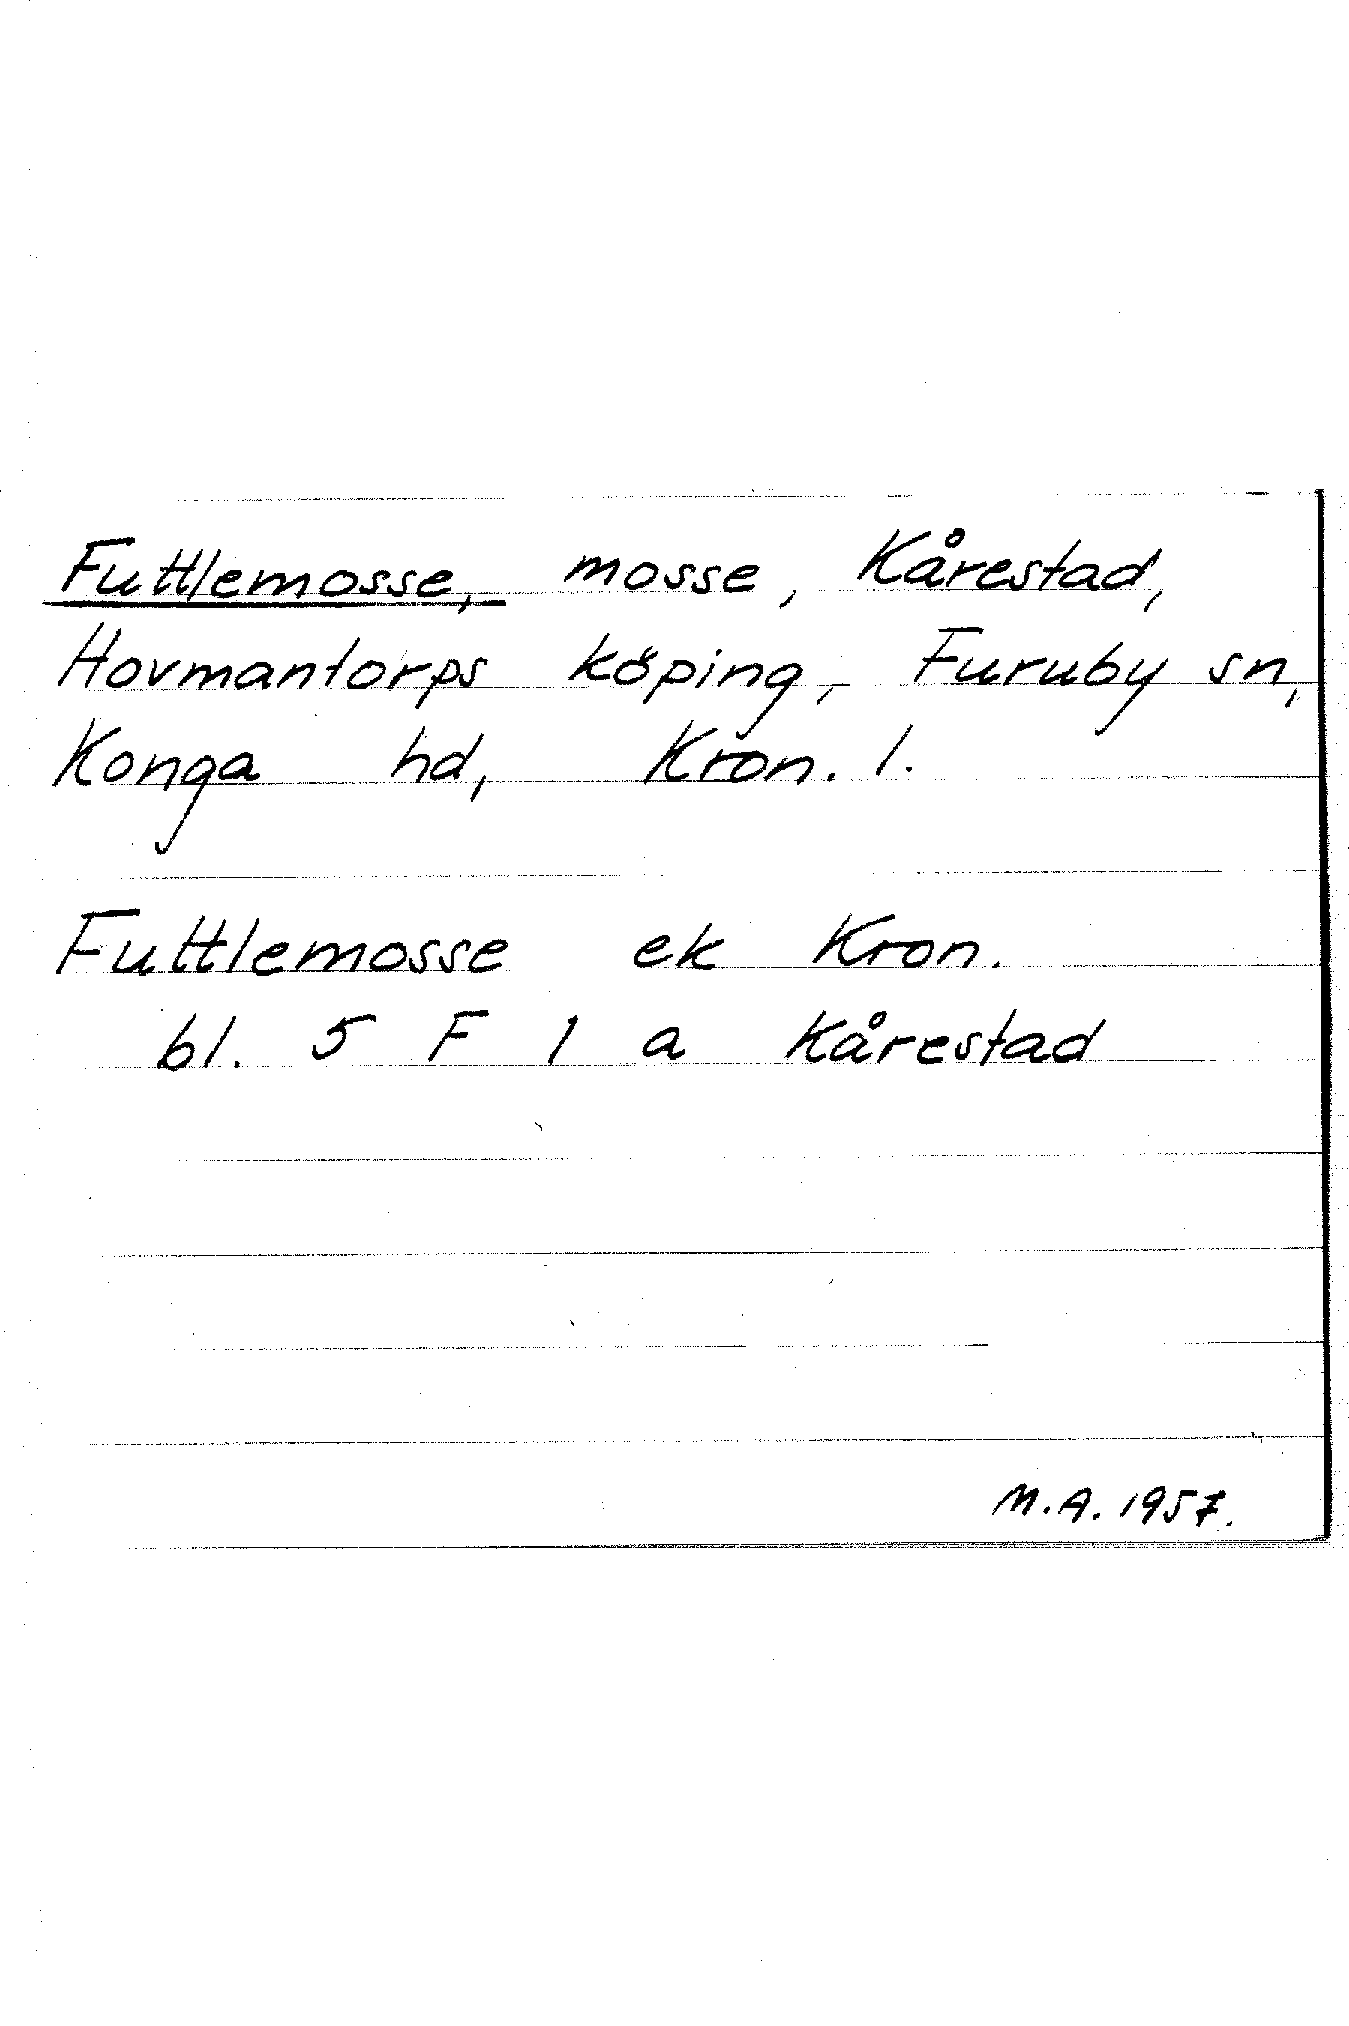 Futtlemosse, mosse, Kårestad,
Hovmantorps köping, Furuby sn,
Konga hd, Kron. l.
Futtlemosse ek Kron.
bl. 5 F 1 a Kårestad
M.A. 1957.